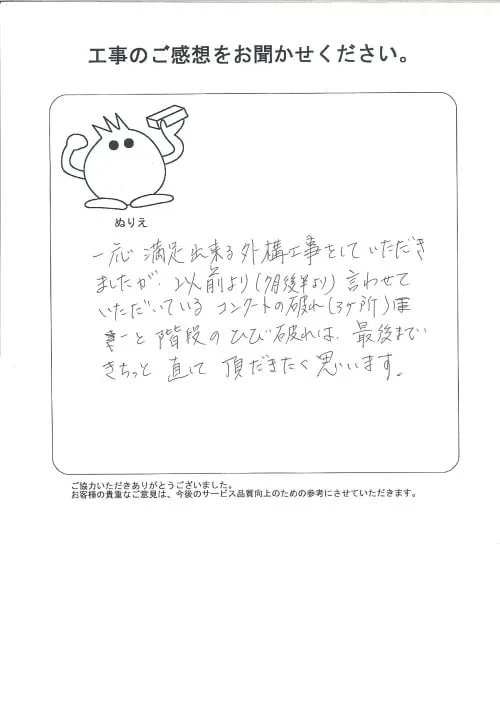 工事のご感想をお聞かせください。
ぬりえ
一応 満足出来る外構工事をしていただき
ましたが、以前より(7月後半より) 言わせて
いただいている コンクートの破れ(3ヶ所)
と 階段のひび破れは、最後まで
きちっと 直して 頂だきたく思います。
ご協力いただきありがとうございました。
お客様の貴重なご意見は、今後のサービス品質向上のための参考にさせていただきます。